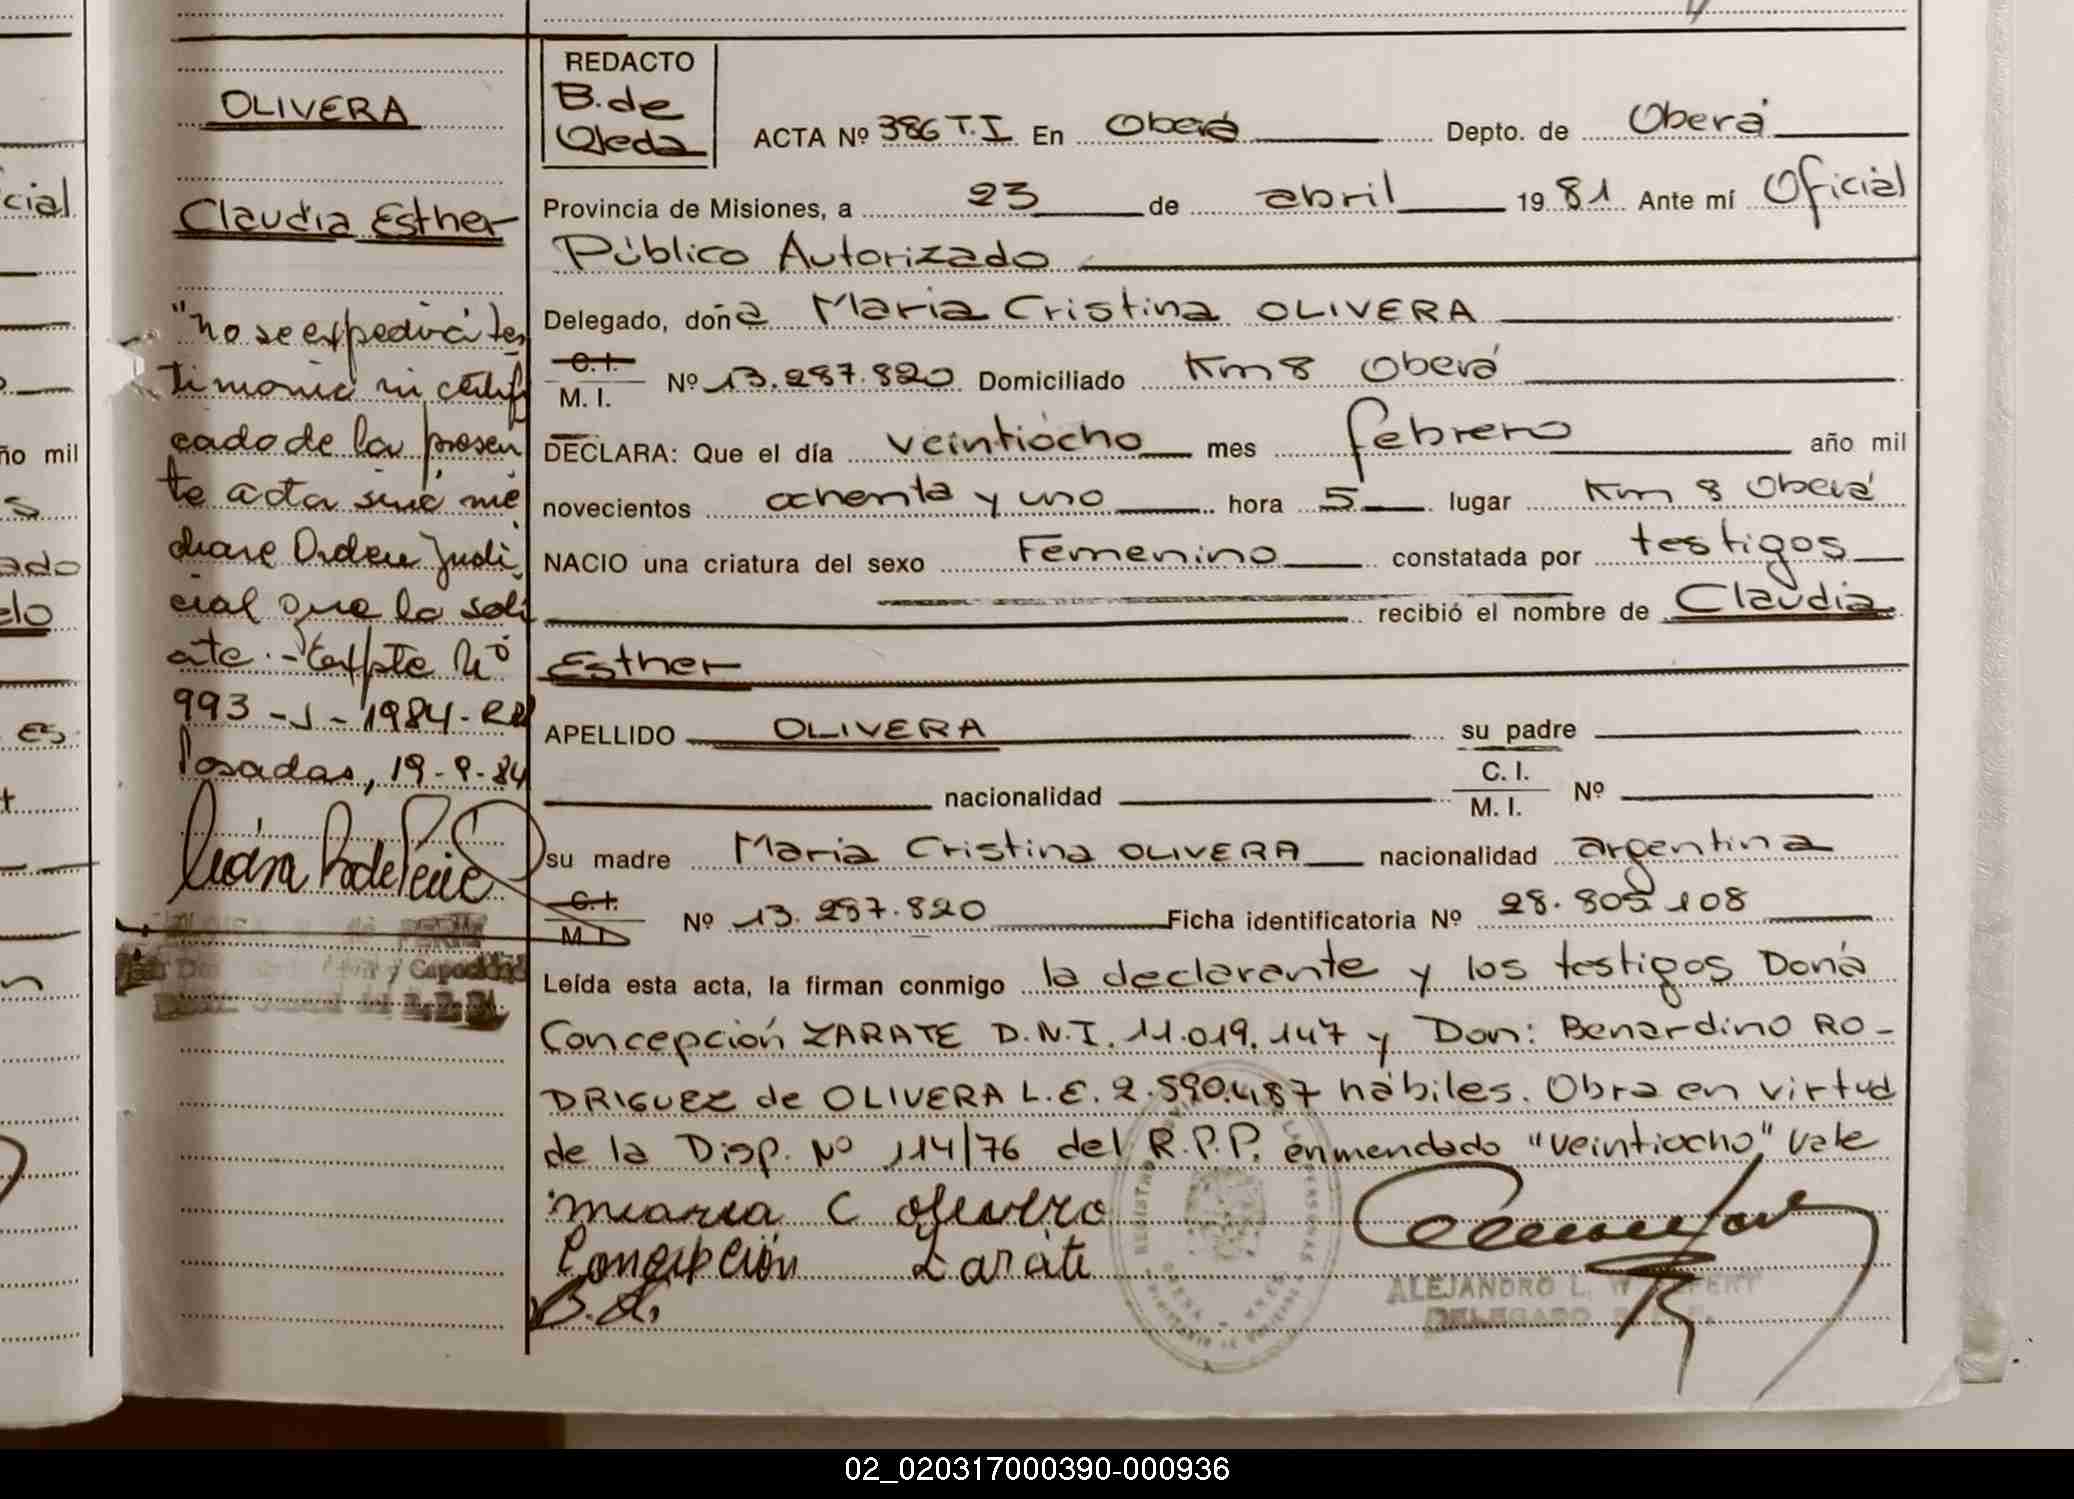 OLIVERA
Claudia Esther
"no se expedirá tes
timonio ni certifi
cado de la presen
te acta sino me
diare Orden Judi
cial que lo soli
cite.- Expte Nº
993 - J - 1984 - RP
Posadas, 19-9-84
REDACTO
B. de
Ojeda
ACTA Nº 386 T.I En Oberá Depto. de Oberá
Provincia de Misiones, a 23 de abril 1981 Ante mí Oficial
Público Autorizado
Delegado, doña Maria Cristina OLIVERA
C. I.
M. I. Nº 13.287.820 Domiciliado Km 8 Oberá
DECLARA: Que el día veintiocho mes febrero año mil
novecientos ochenta y uno hora 5 lugar Km 8 Oberá
NACIO una criatura del sexo Femenino constatada por testigos
recibió el nombre de Claudia
Esther
APELLIDO OLIVERA su padre
nacionalidad C. I.
M. I. Nº
su madre Maria Cristina OLIVERA nacionalidad argentina
C. I.
M. I. Nº 13.287.820 Ficha identificatoria Nº 28.805.108
Leída esta acta, la firman conmigo la declarante y los testigos Doña
Concepción ZARATE D.N.I. 11.019.147 y Don: Benardino RO-
DRIGUEZ de OLIVERA L.E. 2.590.487 hábiles. Obra en virtud
de la Disp. Nº 114/76 del R.P.P. enmendado "veintiocho" vale
Maria C Olivera
Concepción Zarate
ALEJANDRO L.
DELEGADO
cial
ño mil
s
ado
elo
es
02_020317000390-000936